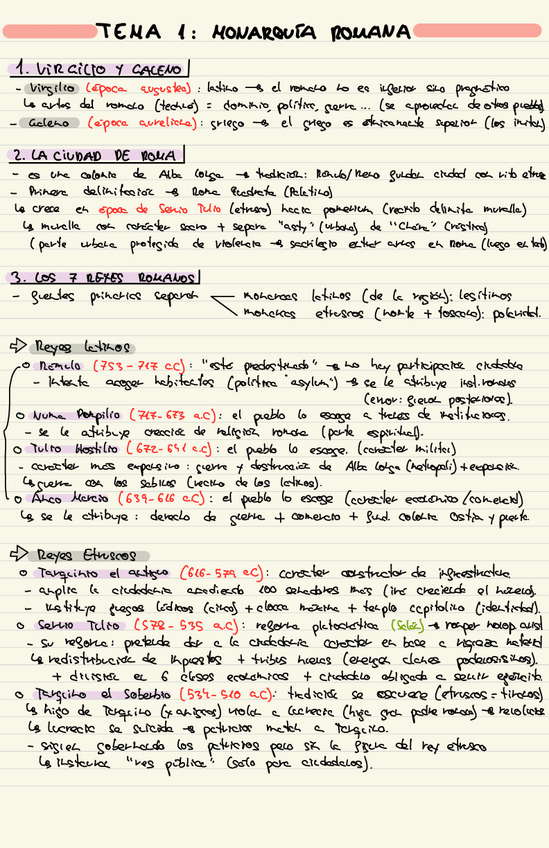 TEMA 1: MONARQUÍA ROMANA
1. VIRGILIO Y GALENO
- Virgilio (época augustea): latino → el romano no es inferior sino pragmático
↳ artes del romano (technos) = dominio, política, guerra... (se aprovechan de otros pueblos)
- Galeno (época aureliana): griego → el griego es étnicamente superior (los imitan)
2. LA CIUDAD DE ROMA
- es una colonia de Alba Longa → tradición: Rómulo/Remo fundan ciudad con rito etrusco
- Primera delimitación → Roma Quadrata (Palatino)
↳ crece en época de Servio Tulio (etrusco) hacia pomerium (recinto delimita muralla)
↳ muralla con carácter sacro + separa "asty" (urbana) de "Chora" (rústica)
(parte urbana protegida de violencia → sacrilegio entrar armas en Roma (luego en
3. LOS 7 REYES ROMANOS
- fuentes primarias separan monarcas latinos (de la región): legítimos
monarcas etruscos (norte + toscana):
⇒ Reyes latinos
○ Rómulo (753-717 a.C): "está predestinado" → no hay participación ciudadana
- intenta acoger habitantes (política "asylum") → se le atribuye inst. romanas
(error: fueron posteriores).
○ Numa Pompilio (717-673 a.C): el pueblo lo escoge a través de instituciones.
- se le atribuye creación de religión romana (parte espiritual).
○ Tulio Hostilio (672-641 a.C): el pueblo lo escoge. (carácter militar)
- carácter más expansivo: guerra y destrucción de Alba Longa (metrópoli) + expansión.
↳ guerra con los sabinos (vecinos de los latinos).
○ Anco Marcio (639-616 a.C): el pueblo lo escoge (carácter económico/comercial)
↳ se le atribuye: derecho de guerra + comercio + fund. colonia Ostia y puente.
⇒ Reyes Etruscos
○ Tarquinio el antiguo (616-579 a.C): carácter constructor de infraestructura
- amplía la ciudadanía añadiendo 100 senadores más (irá creciendo el número).
- instituye juegos lúdicos (circo) + cloaca máxima + templo capitolino (identidad).
○ Servio Tulio (578-535 a.C): reforma plutocrática (Solón) → romper monop. aurist
- su reforma: pretende dar a la ciudadanía carácter en base a riqueza material
↳ redistribución de impuestos + tribus nuevas (emergen clanes poderosísimos).
+ división en 6 clases económicas + ciudadano obligado a servir ejército
○ Tarquino el Soberbio (534-510 a.C): tradición se escuece (etruscos = tiranos)
↳ hijo de Tarquino (y amigos) viola a Lucrecia (hija gran padre romano) →
↳ Lucrecia se suicida → patricios matan a Tarquino.
- siguen gobernando los patricios pero sin la figura del rey etrusco
↳ instaura "res pública" (solo para ciudadanos).